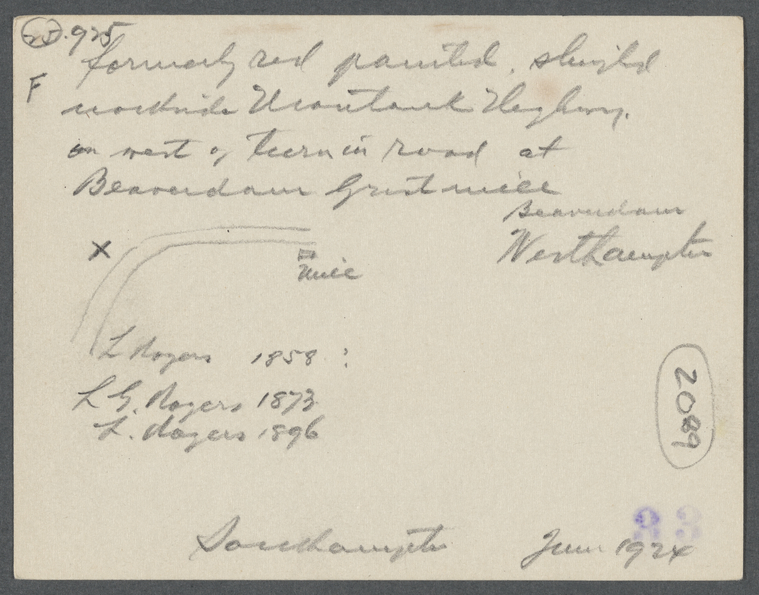 25.925
F
formerly red painted, shingled
northside Montauk Highway.
on west of turn in road at
Beaverdam Grist mill
Beaverdam
Westhampton
X
mill
L Rogers 1858 :
L G. Rogers 1873
L. Rogers 1896
2089
Southampton June 1924
33